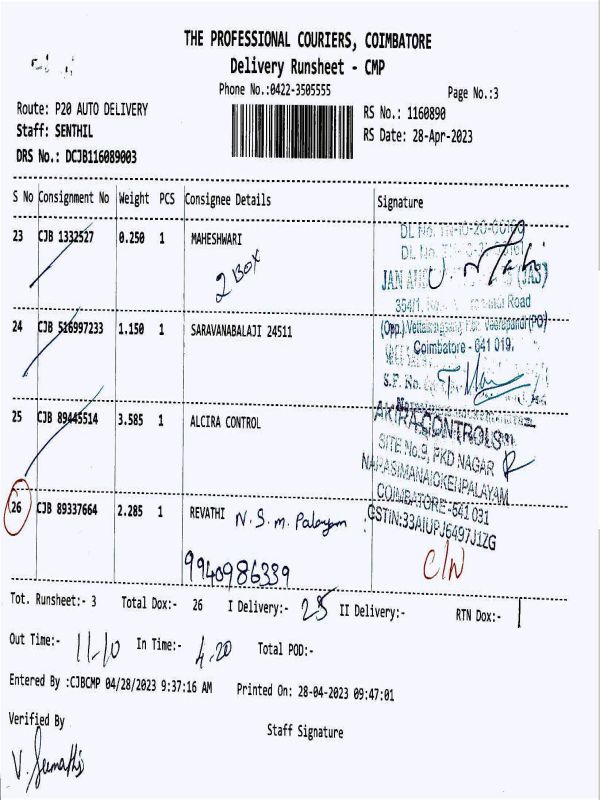 THE PROFESSIONAL COURIERS, COIMBATORE
Delivery Runsheet - CMP
Phone No.:0422-3505555
Page No.:3
Route: P20 AUTO DELIVERY
RS No.: 1160890
Staff: SENTHIL
RS Date: 28-Apr-2023
DRS No.: DCJB116089003
S No Consignment No Weight PCS Consignee Details Signature
23 CJB 1332527 0.250 1 MAHESHWARI
2 BOX
(JAS)
354/1, Road
(Opp.) Veerapandi (PO)
24 CJB 516997233 1.150 1 SARAVANABALAJI 24511
Coimbatore - 641 019.
S.F. No.
25 CJB 89445514 3.585 1 ALCIRA CONTROL
AKIRA CONTROLS
SITE No.9, PKD NAGAR
NARASIMANAICKENPALAYAM
COIMBATORE - 641 031
GSTIN:33AIUPJ6497J1ZG
26 CJB 89337664 2.285 1 REVATHI N.S.m. Palayam
C/N
9940986339
Tot. Runsheet:- 3 Total Dox:- 26 I Delivery:- 25 II Delivery:- RTN Dox:- 1
Out Time:- 11.10 In Time:- 4.20 Total POD:-
Entered By :CJBCMP 04/28/2023 9:37:16 AM Printed On: 28-04-2023 09:47:01
Verified By
Staff Signature